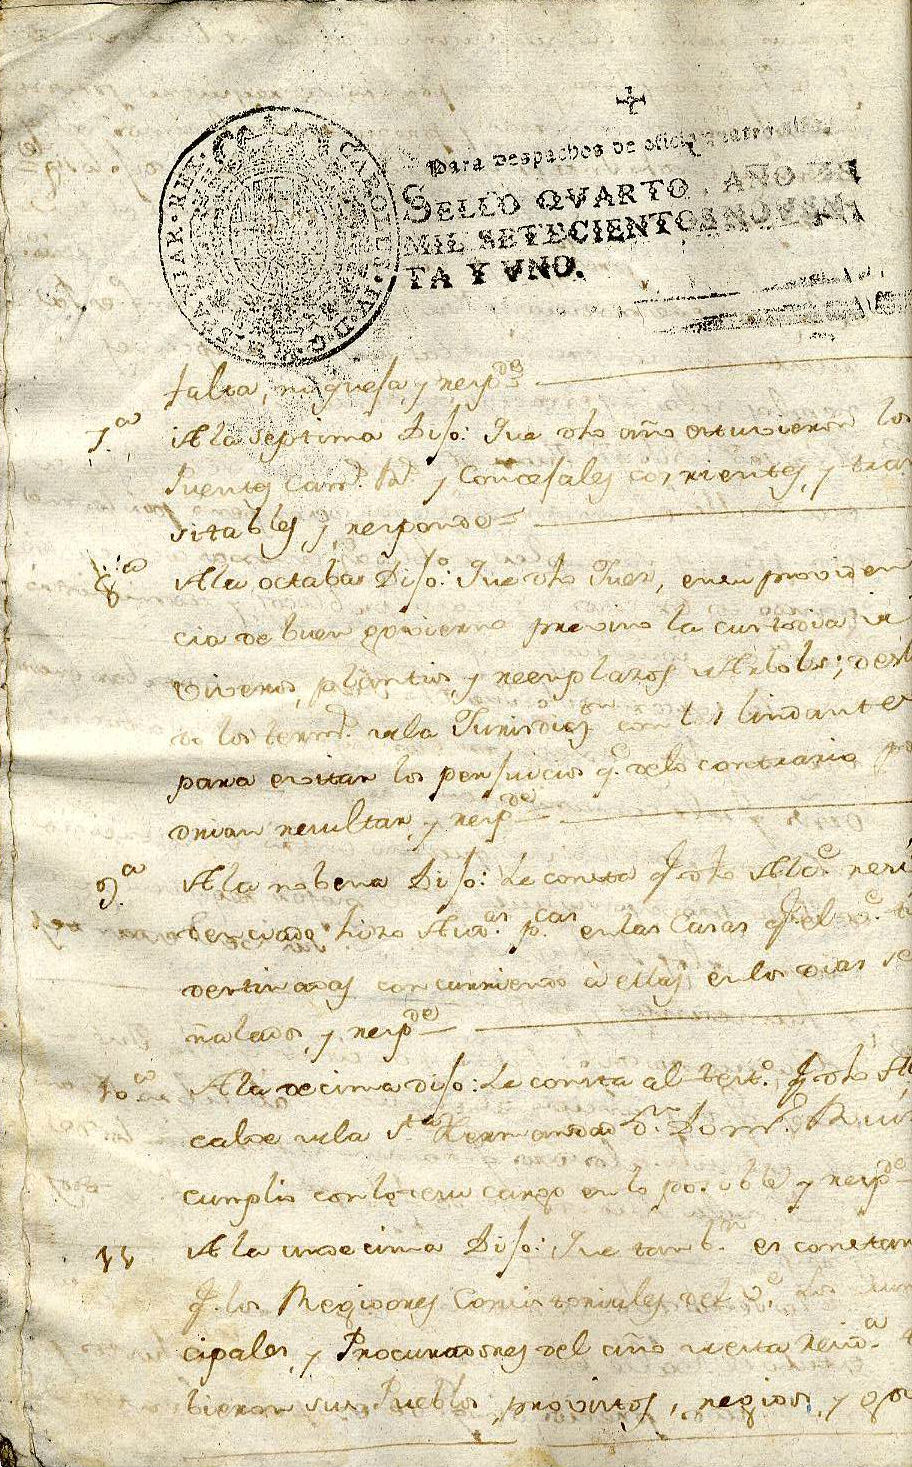 CAROLUS IV D G HISPANIAR REX
Para despachos de oficio
SELLO QVARTO, AÑO DE
MIL SETECIENTOS NOVEN
TA Y VNO.
falta, ni quexa, y resp.de
7.a A la septima Dijo: Que dho año estuvieron los
Puentes Cam.s R.s y Concejales corrientes, y tran
sitables, y responde
8.a A la octaba Dijo: Que dho Juez, en su providen
cia de buen govierno previno la custodia de
Viveros, plantios, y reemplazos de Arboles;
de los term.s de la Jurisdicz.n con los lindantes
para evitar los perjuicios q.e de lo contrario po
drian resultar, y resp.de
9.a A la nobena Dijo: Le consta q.e dho Alc.e resi
denciado hizo Aud.as p.cas en las Casas q.e el
destinadas concurriendo à ellas en los dias se
ñalados, y resp.de
10.a A la decima dijo: Le consta al test.o q.e dho Al
calde de la S.ta Hermandad D.n Dom.o Ruiz
cumplio con lo de su cargo en lo posible y resp.de
11 A la undecima Dijo: Que tamb.n es constan
q.e los Regidores Consistoriales del
cipales, y Procuradores del año de esta Resid.a
bieron sus Pueblos, provistos, regidos, y